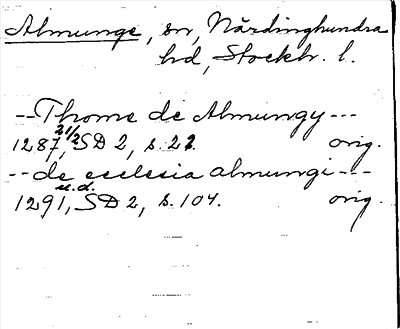 Almunge, sn, Närdinghundra
hd, Stockh. l.
--Thome de Almungy---
1287 21/2, SD 2, s. 22. orig.
--de ecclesia almungi---
1291 u.d., SD 2, s. 104. orig.